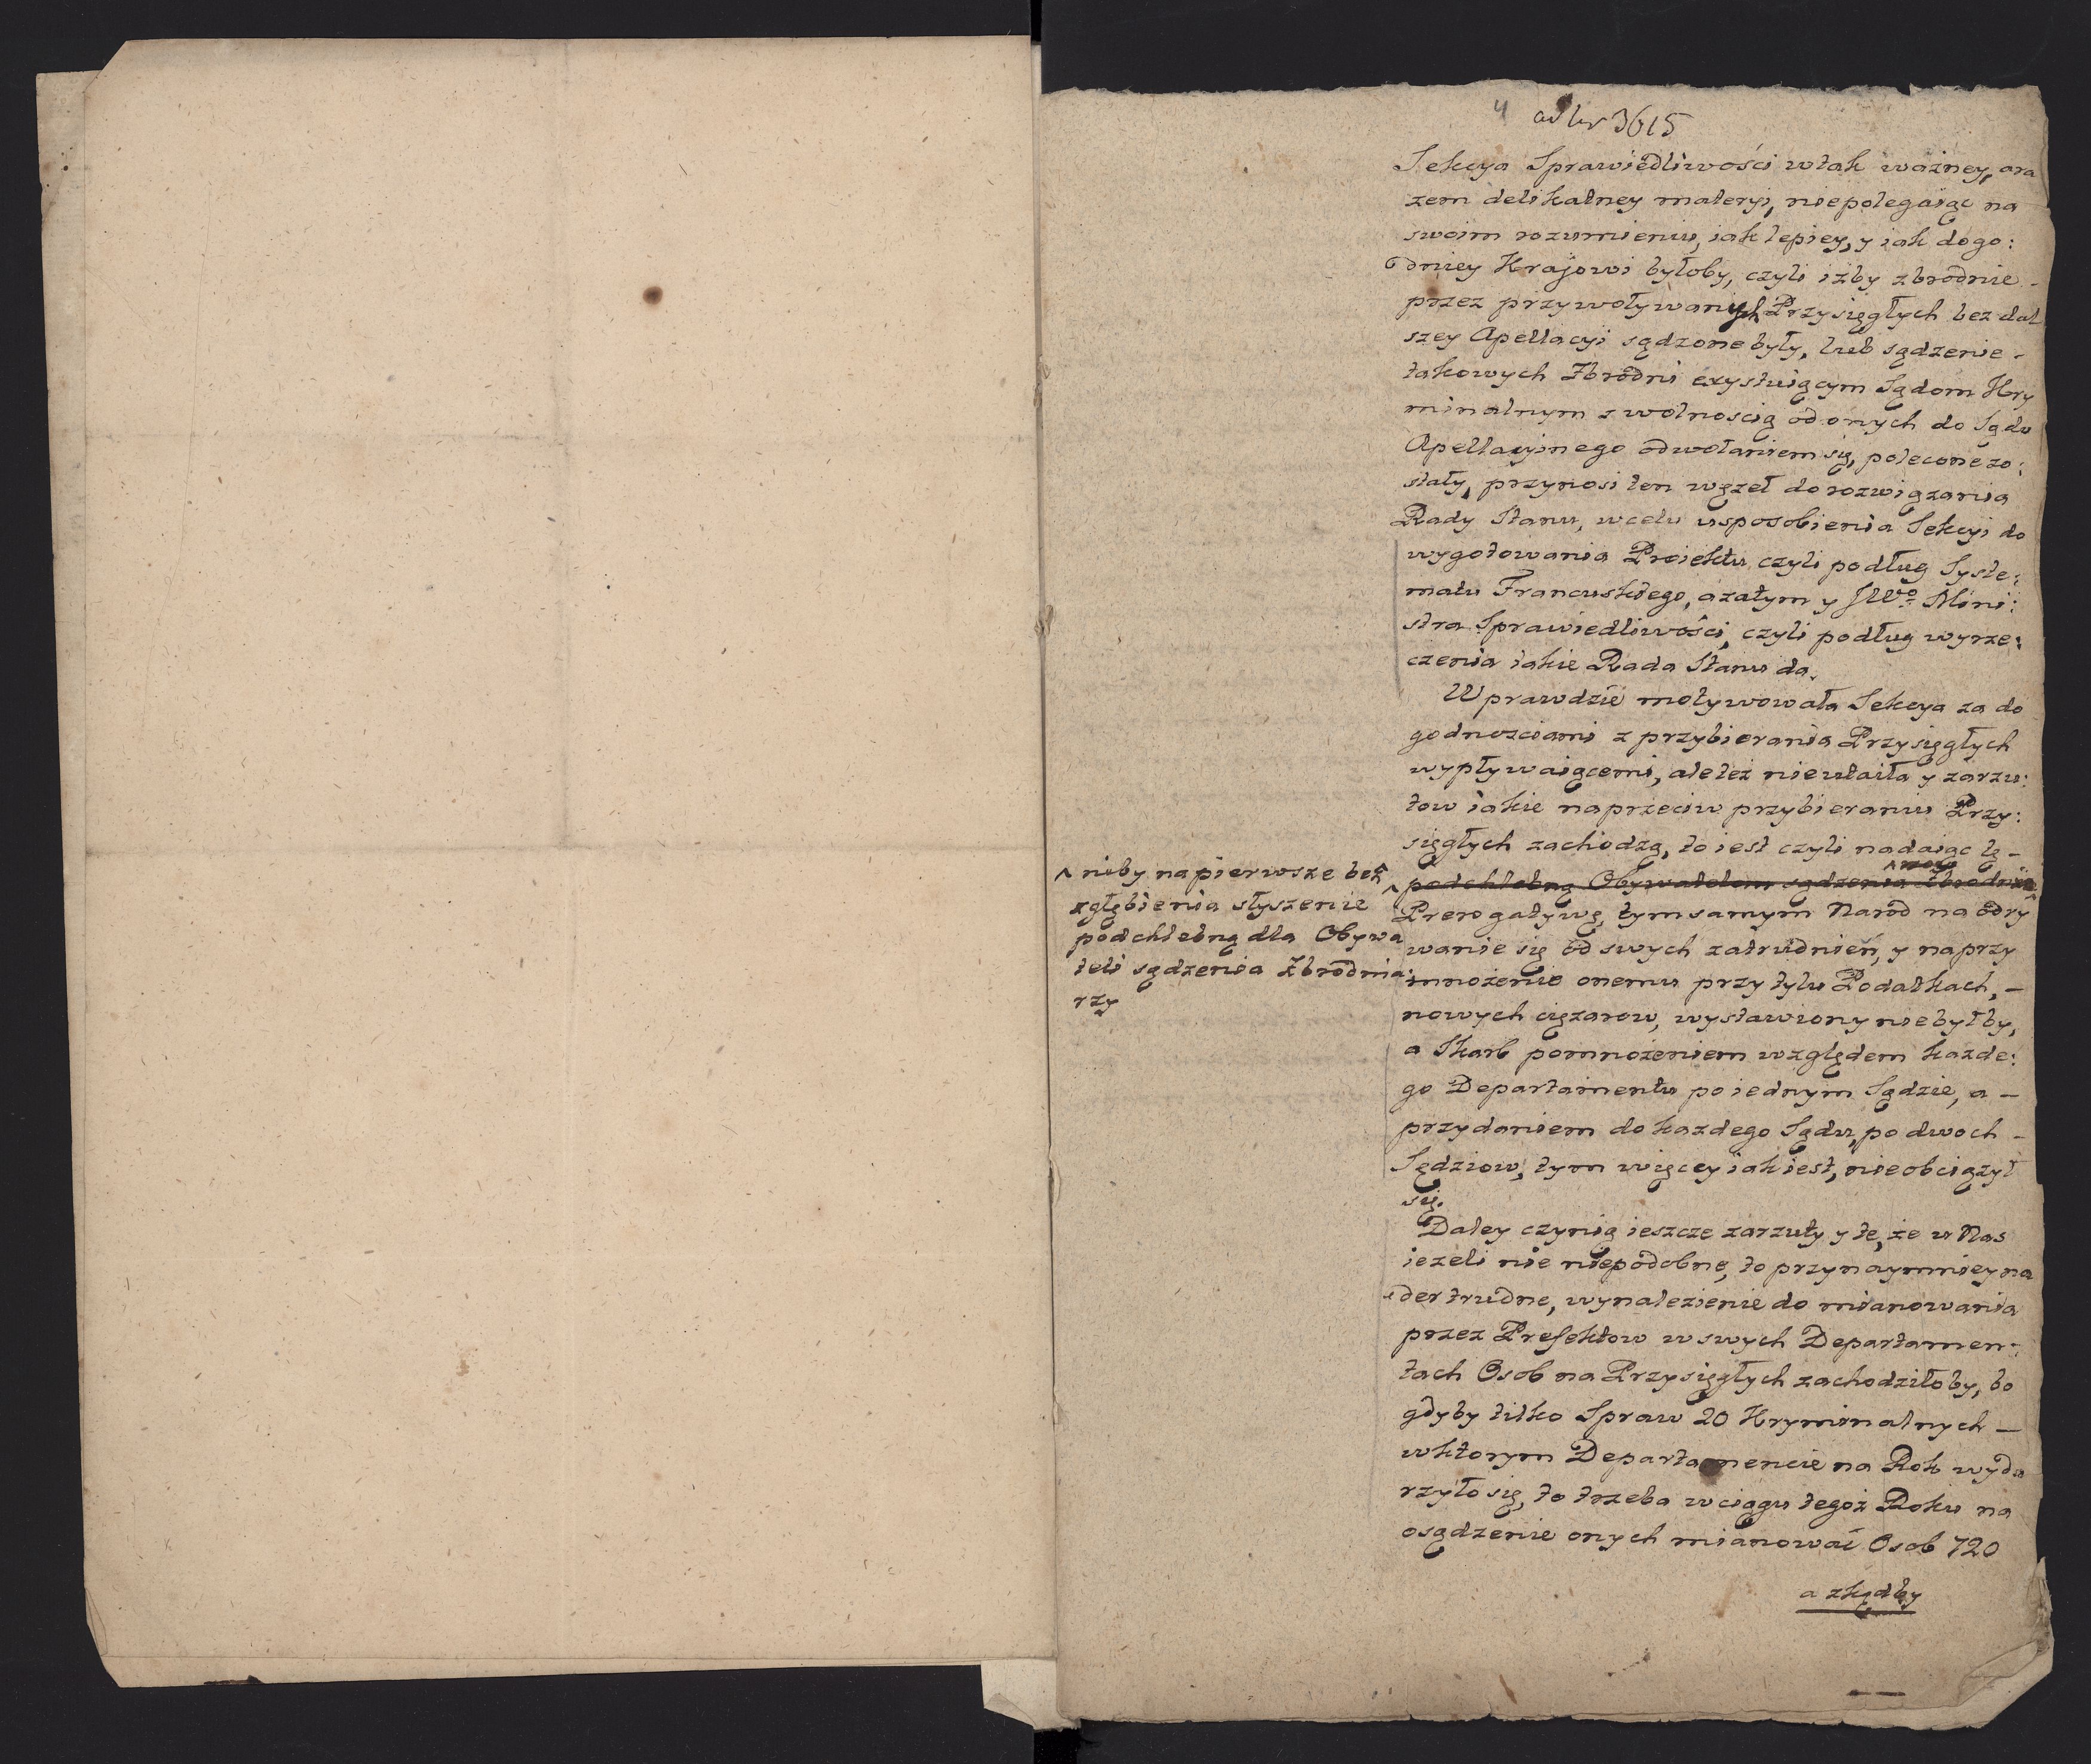 4
ad Nr 3615
Sekcya Sprawiedliwości w tak ważney, ara
zem delikatney materyi, niepolegaiąc na
swoim rozumieniu, iak lepiey, y iak dogo:
dniey Krajowi byłoby, czyli iżby zbrodnie -
przez przywoływanych Przysięgłych bez dal
szey Apellacyi sądzone były, lub sądzenie -
takowych Zbrodni exystuiącym Sądom Kry
minalnym z wolnoscią od onych do Sądu
Apellacyinego odwołaniem się, polecone zo:
stały, przynosi ten węzeł do rozwiązania
Rady Stanu, w celu usposobienia Sekcyi do
wygotowania Proiektu czyli podług Syste:
matu Francuskiego, azatym y JWo Mini:
stra Sprawiedliwości, czyli podług wyrze:
czenia iakie Rada Stanu da.
Wprawdzie motywowała Sekcya za do
godnosciami z przybierania Przysięgłych
wypływaiącemi, ale też nieutaiła y zarzu:
tow iakie naprzeciw przybieraniu Przy:
sięgłych zachodzą, to iest czyli nadaiąc tę -
podchlebną Obywatelom sądzenia Zbrodnia
Prerogatywę, tym samym Narod na odry
wanie się od swych zatrudnień, y na przy
mnożenie onemu przy tylu Podatkach, -
nowych ciężarow, wystawiony niebyłby,
a Skarb pomnożeniem względem kazde:
go Departamentu po iednym Sądzie, a -
przydaniem do kazdego Sądu, po dwoch -
Sędziow, tym więcey iak iest, nieobciążył
się.
^ niby na pierwsze bez
zgłębienia słyszenie
podchlebną dla Obywa
teli sądzenia Zbrodnia:
rzy
Daley czynią ieszcze zarzuty y te, że u Nas
ieżeli nie niepodobne, to przynaymniey na
der trudne, wynalezienie do mianowania
przez Prefektow w swych Departamen:
tach Osob na Przysięgłych zachodziłoby, bo
gdyby tilko Spraw 20 Kryminalnych -
w ktorym Departamencie na Rok wyda
rzyło się, to trzeba w ciągu tegoż Roku na
osądzenie onych mianować Osob 720
a zkądby